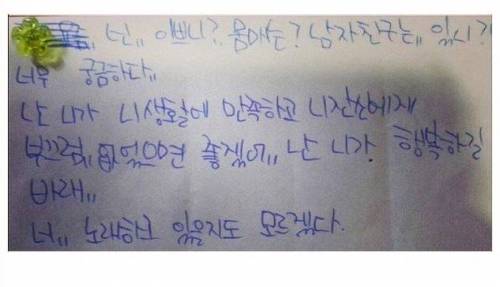 넌,, 이쁘니?, 몸매는? 남자친구는,, 있니?!
너무 궁금하다,,
난 니가 니생활에 만족하고 니자신에게
부끄럼,, 없었으면 좋겠어,, 난 니가 행복하길
바래,,
너,, 노래하고 있을지도 모르겠다.